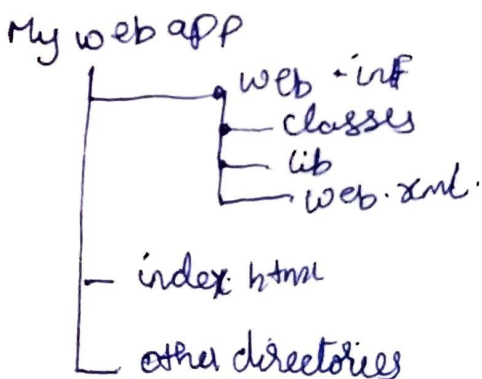 My web app
web-inf
classes
lib
web.xml.
index.html
other directories